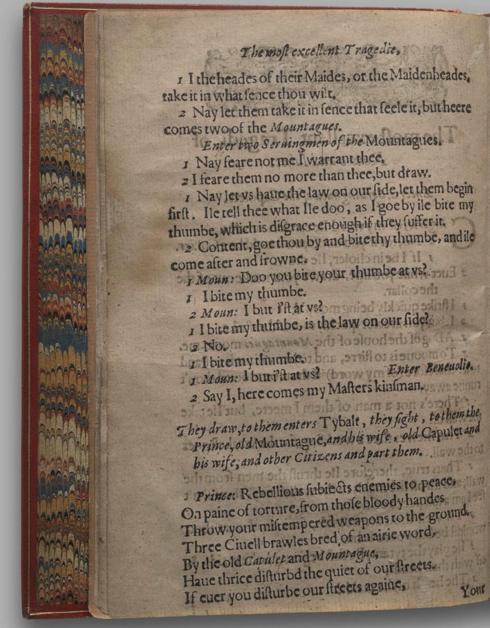 The most excellent Tragedie,
1 I the heades of their Maides, or the Maidenheades,
take it in what sence thou wilt.
2 Nay let them take it in sence that feele it, but heere
comes two of the Mountagues.
Enter two Seruingmen of the Mountagues.
1 Nay feare not me I warrant thee.
2 I feare them no more than thee, but draw.
1 Nay let vs haue the law on our side, let them begin
first. Ile tell thee what Ile doo, as I goe by ile bite my
thumbe, which is disgrace enough if they suffer it.
2 Content, goe thou by and bite thy thumbe, and ile
come after and frowne.
1 Moun: Doo you bite your thumbe at vs?
1 I bite my thumbe.
2 Moun: I but i'st at vs?
1 I bite my thumbe, is the law on our side?
2 No.
1 I bite my thumbe.
1 Moun: I but i'st at vs? Enter Beneuolio.
2 Say I, here comes my Masters kinsman.
They draw, to them enters Tybalt, they fight, to them the
Prince, old Mountague, and his wife, old Capulet and
his wife, and other Citizens and part them.
Prince: Rebellious subiects enemies to peace,
On paine of torture, from those bloody handes
Throw your mistempered weapons to the ground.
Three Ciuell brawles bred of an airie word,
By the old Capulet and Mountague,
Haue thrice disturbd the quiet of our streets.
If euer you disturbe our streets againe,
Your